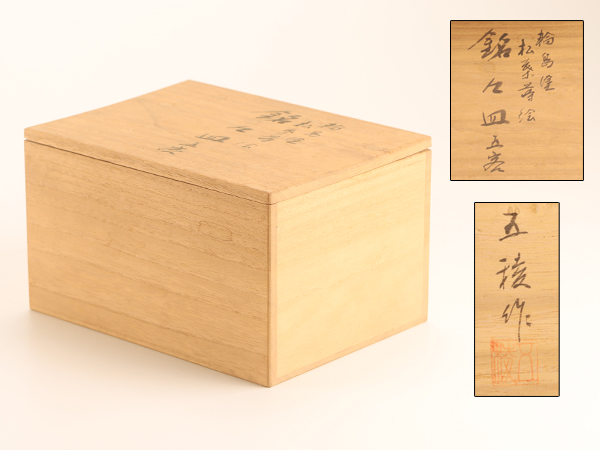 輪島塗
松葉蒔絵
銘々皿五客
五稜作